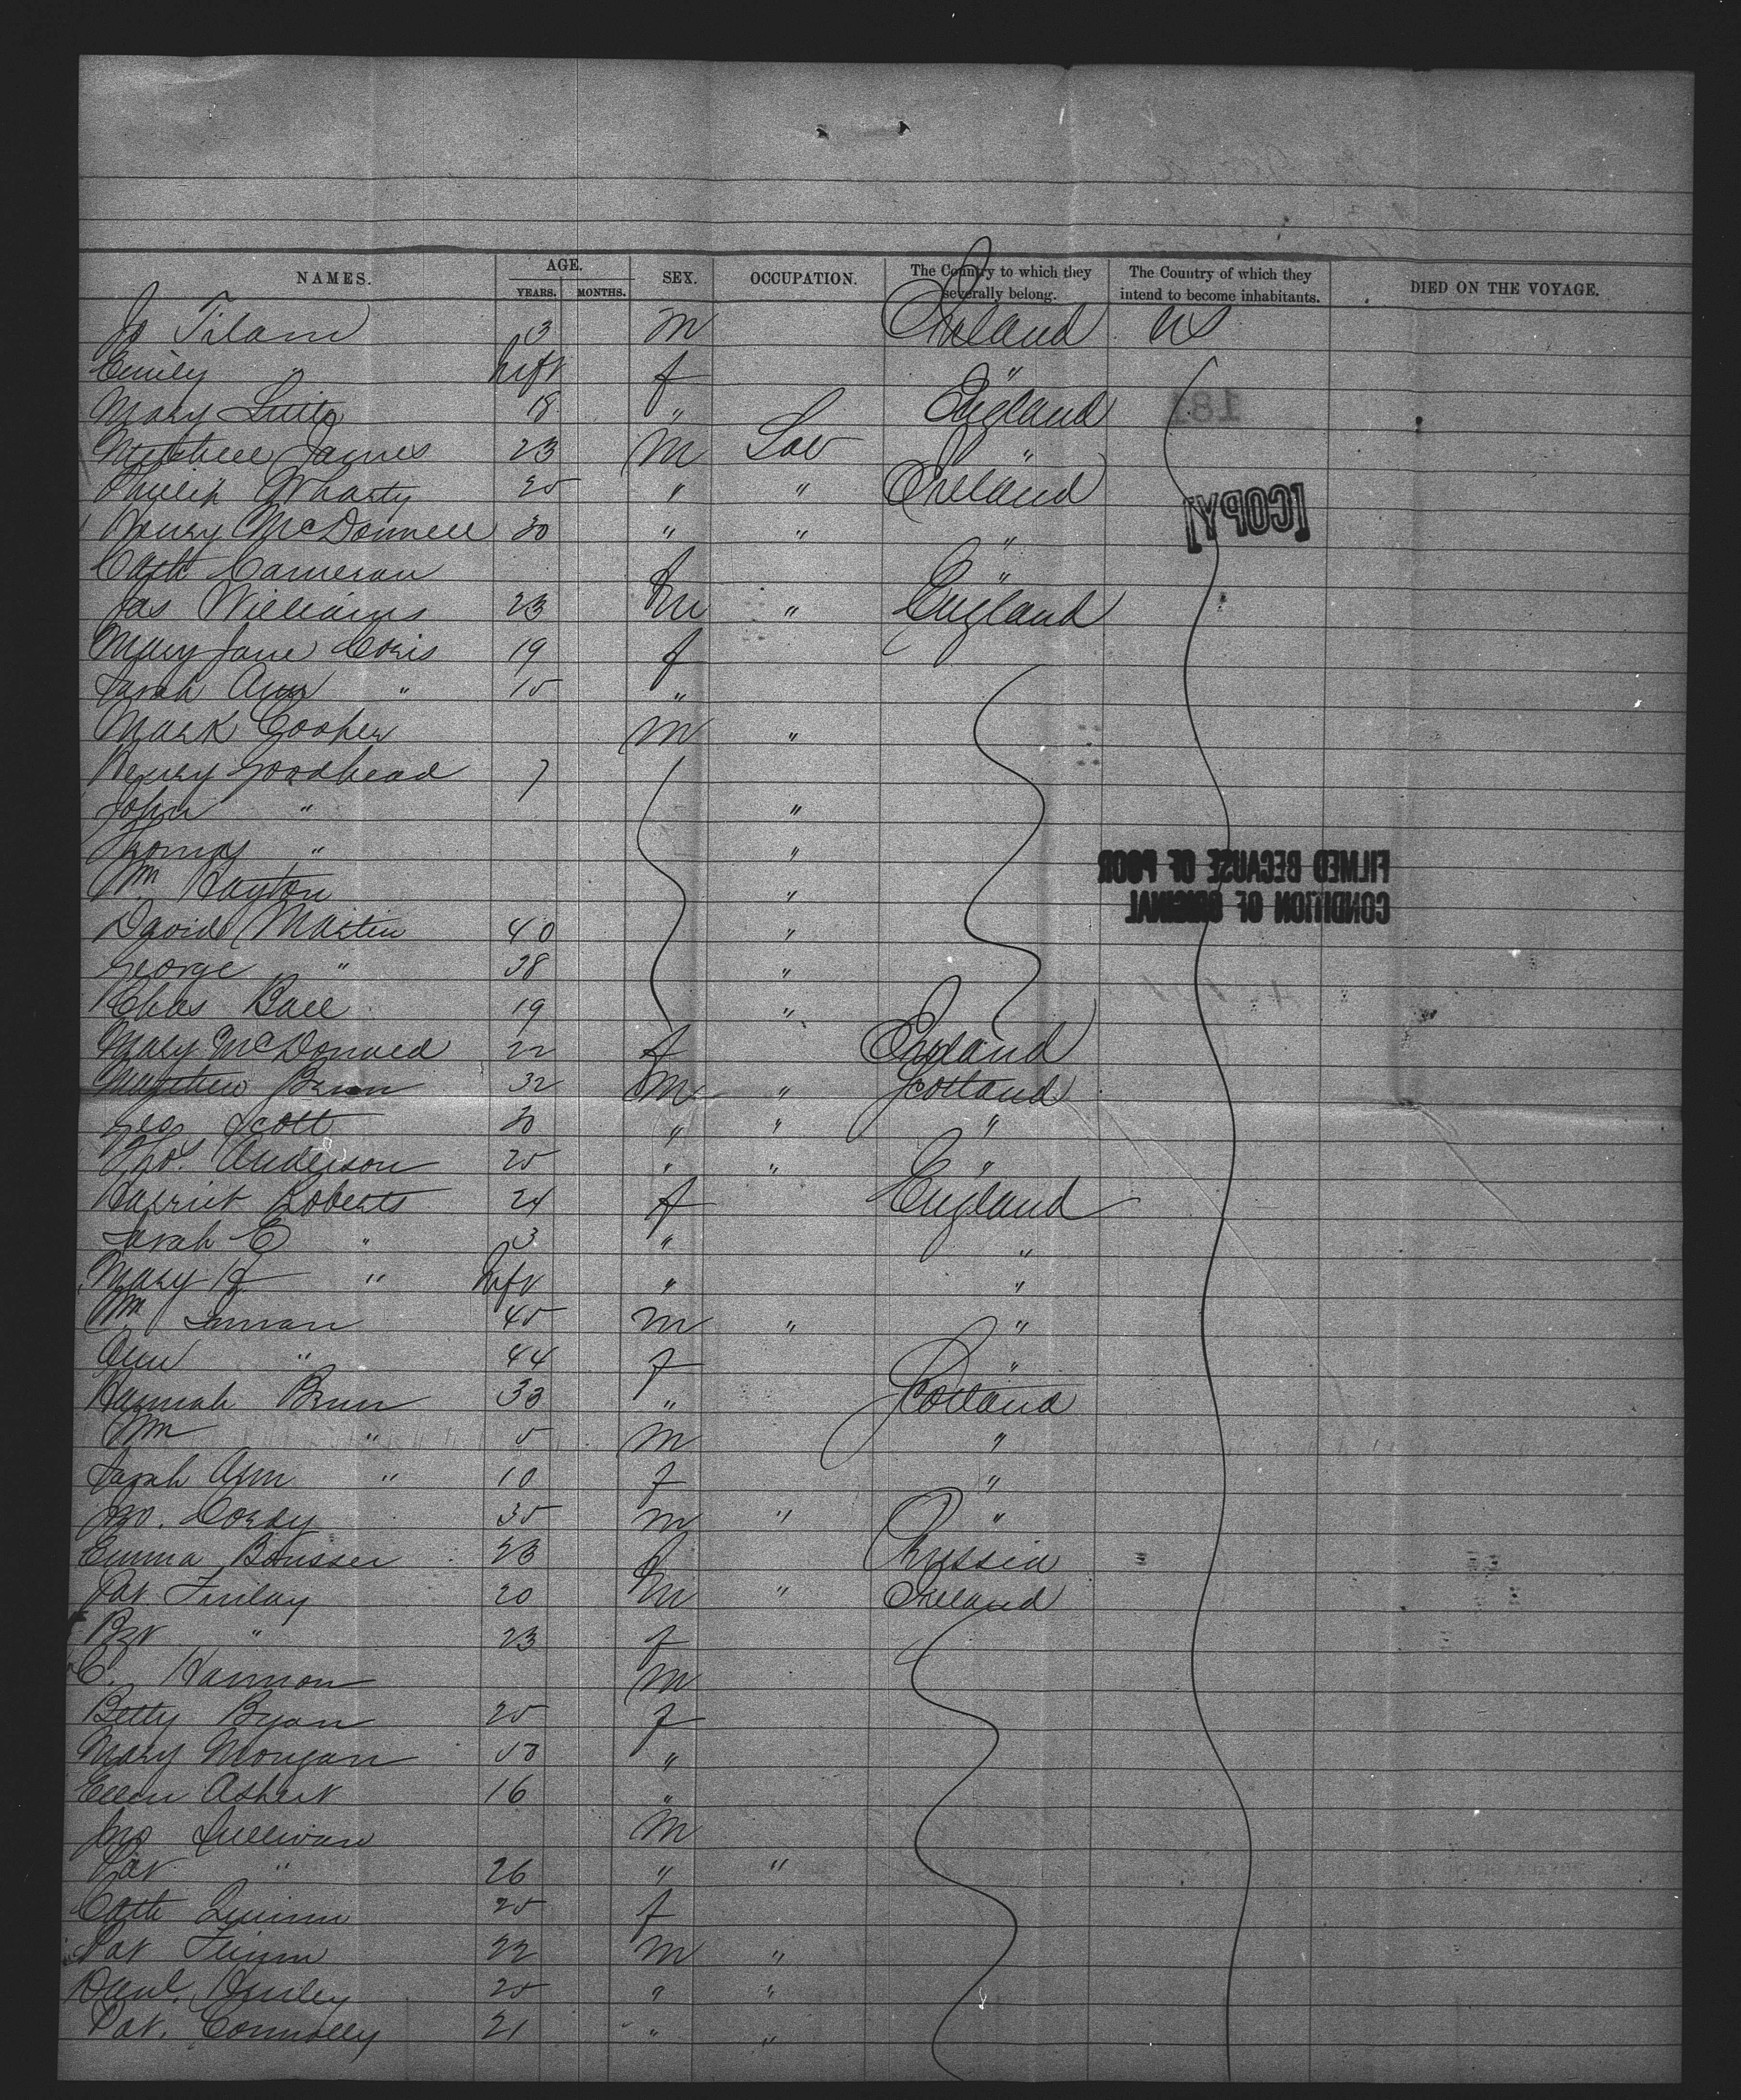 NAMES. AGE. YEARS. MONTHS. SEX. OCCUPATION. The Country to which they severally belong. The Country of which they intend to become inhabitants. DIED ON THE VOYAGE.
Jo Tilam 3 m Ireland US
Emily " Inft f "
Mary 18 " England
181
Mitchell James 23 M Lab "
Philip Gharty 25 " " Ireland
[COPY]
Henry McDonnell 30 " " "
Cath Cameron f "
Jas Williams 23 m " England
Mary Jane Coris 19 f
Sarah Ann " 15 "
Mark Cooper m "
Henry Goodhead 7
John " "
Thomas " "
FILMED BECAUSE OF POOR
CONDITION OF ORIGINAL
Wm Hayton "
David Martin 40 "
George " 38 "
Chas Ball 19 "
Mary McDonald 22 f England
Matthew Brun 32 M " Scotland
Geo Scott 30 " " "
Tho. Anderson 25 " " "
Harriet Roberts 24 f England
Sarah E " 3 " "
Mary H " Inft " "
Wm Inman 45 m " "
Ann " 44 f "
Hannah Brun 33 " Scotland
Wm " 5 m "
Sarah Ann " 10 f "
Jno. Cordy 35 m " "
Emma Bousser 23 f Prussia
Pat Finlay 20 m " Ireland
Bgt " 23 f
C. Harmon m
Betty Ryan 25 f
Mary Morgan 50 "
Ellen 16 "
Jno Sullivan m
Pat " 26 " "
Cath Quinn 25 f
Pat Finn 22 m "
Danl. Hurley 25 " "
Pat. Connolly 21 " "